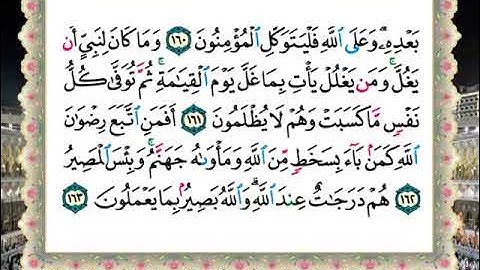 بَعْدِهِۦ ۗ وَعَلَى ٱللَّهِ فَلْيَتَوَكَّلِ ٱلْمُؤْمِنُونَ ١٦٠ وَمَا كَانَ لِنَبِيٍّ أَن
يَغُلَّ ۚ وَمَن يَغْلُلْ يَأْتِ بِمَا غَلَّ يَوْمَ ٱلْقِيَٰمَةِ ۚ ثُمَّ تُوَفَّىٰ كُلُّ
نَفْسٍ مَّا كَسَبَتْ وَهُمْ لَا يُظْلَمُونَ ١٦١ أَفَمَنِ ٱتَّبَعَ رِضْوَٰنَ
ٱللَّهِ كَمَنۢ بَآءَ بِسَخَطٍ مِّنَ ٱللَّهِ وَمَأْوَىٰهُ جَهَنَّمُ ۚ وَبِئْسَ ٱلْمَصِيرُ
١٦٢ هُمْ دَرَجَٰتٌ عِندَ ٱللَّهِ ۗ وَٱللَّهُ بَصِيرٌۢ بِمَا يَعْمَلُونَ ١٦٣